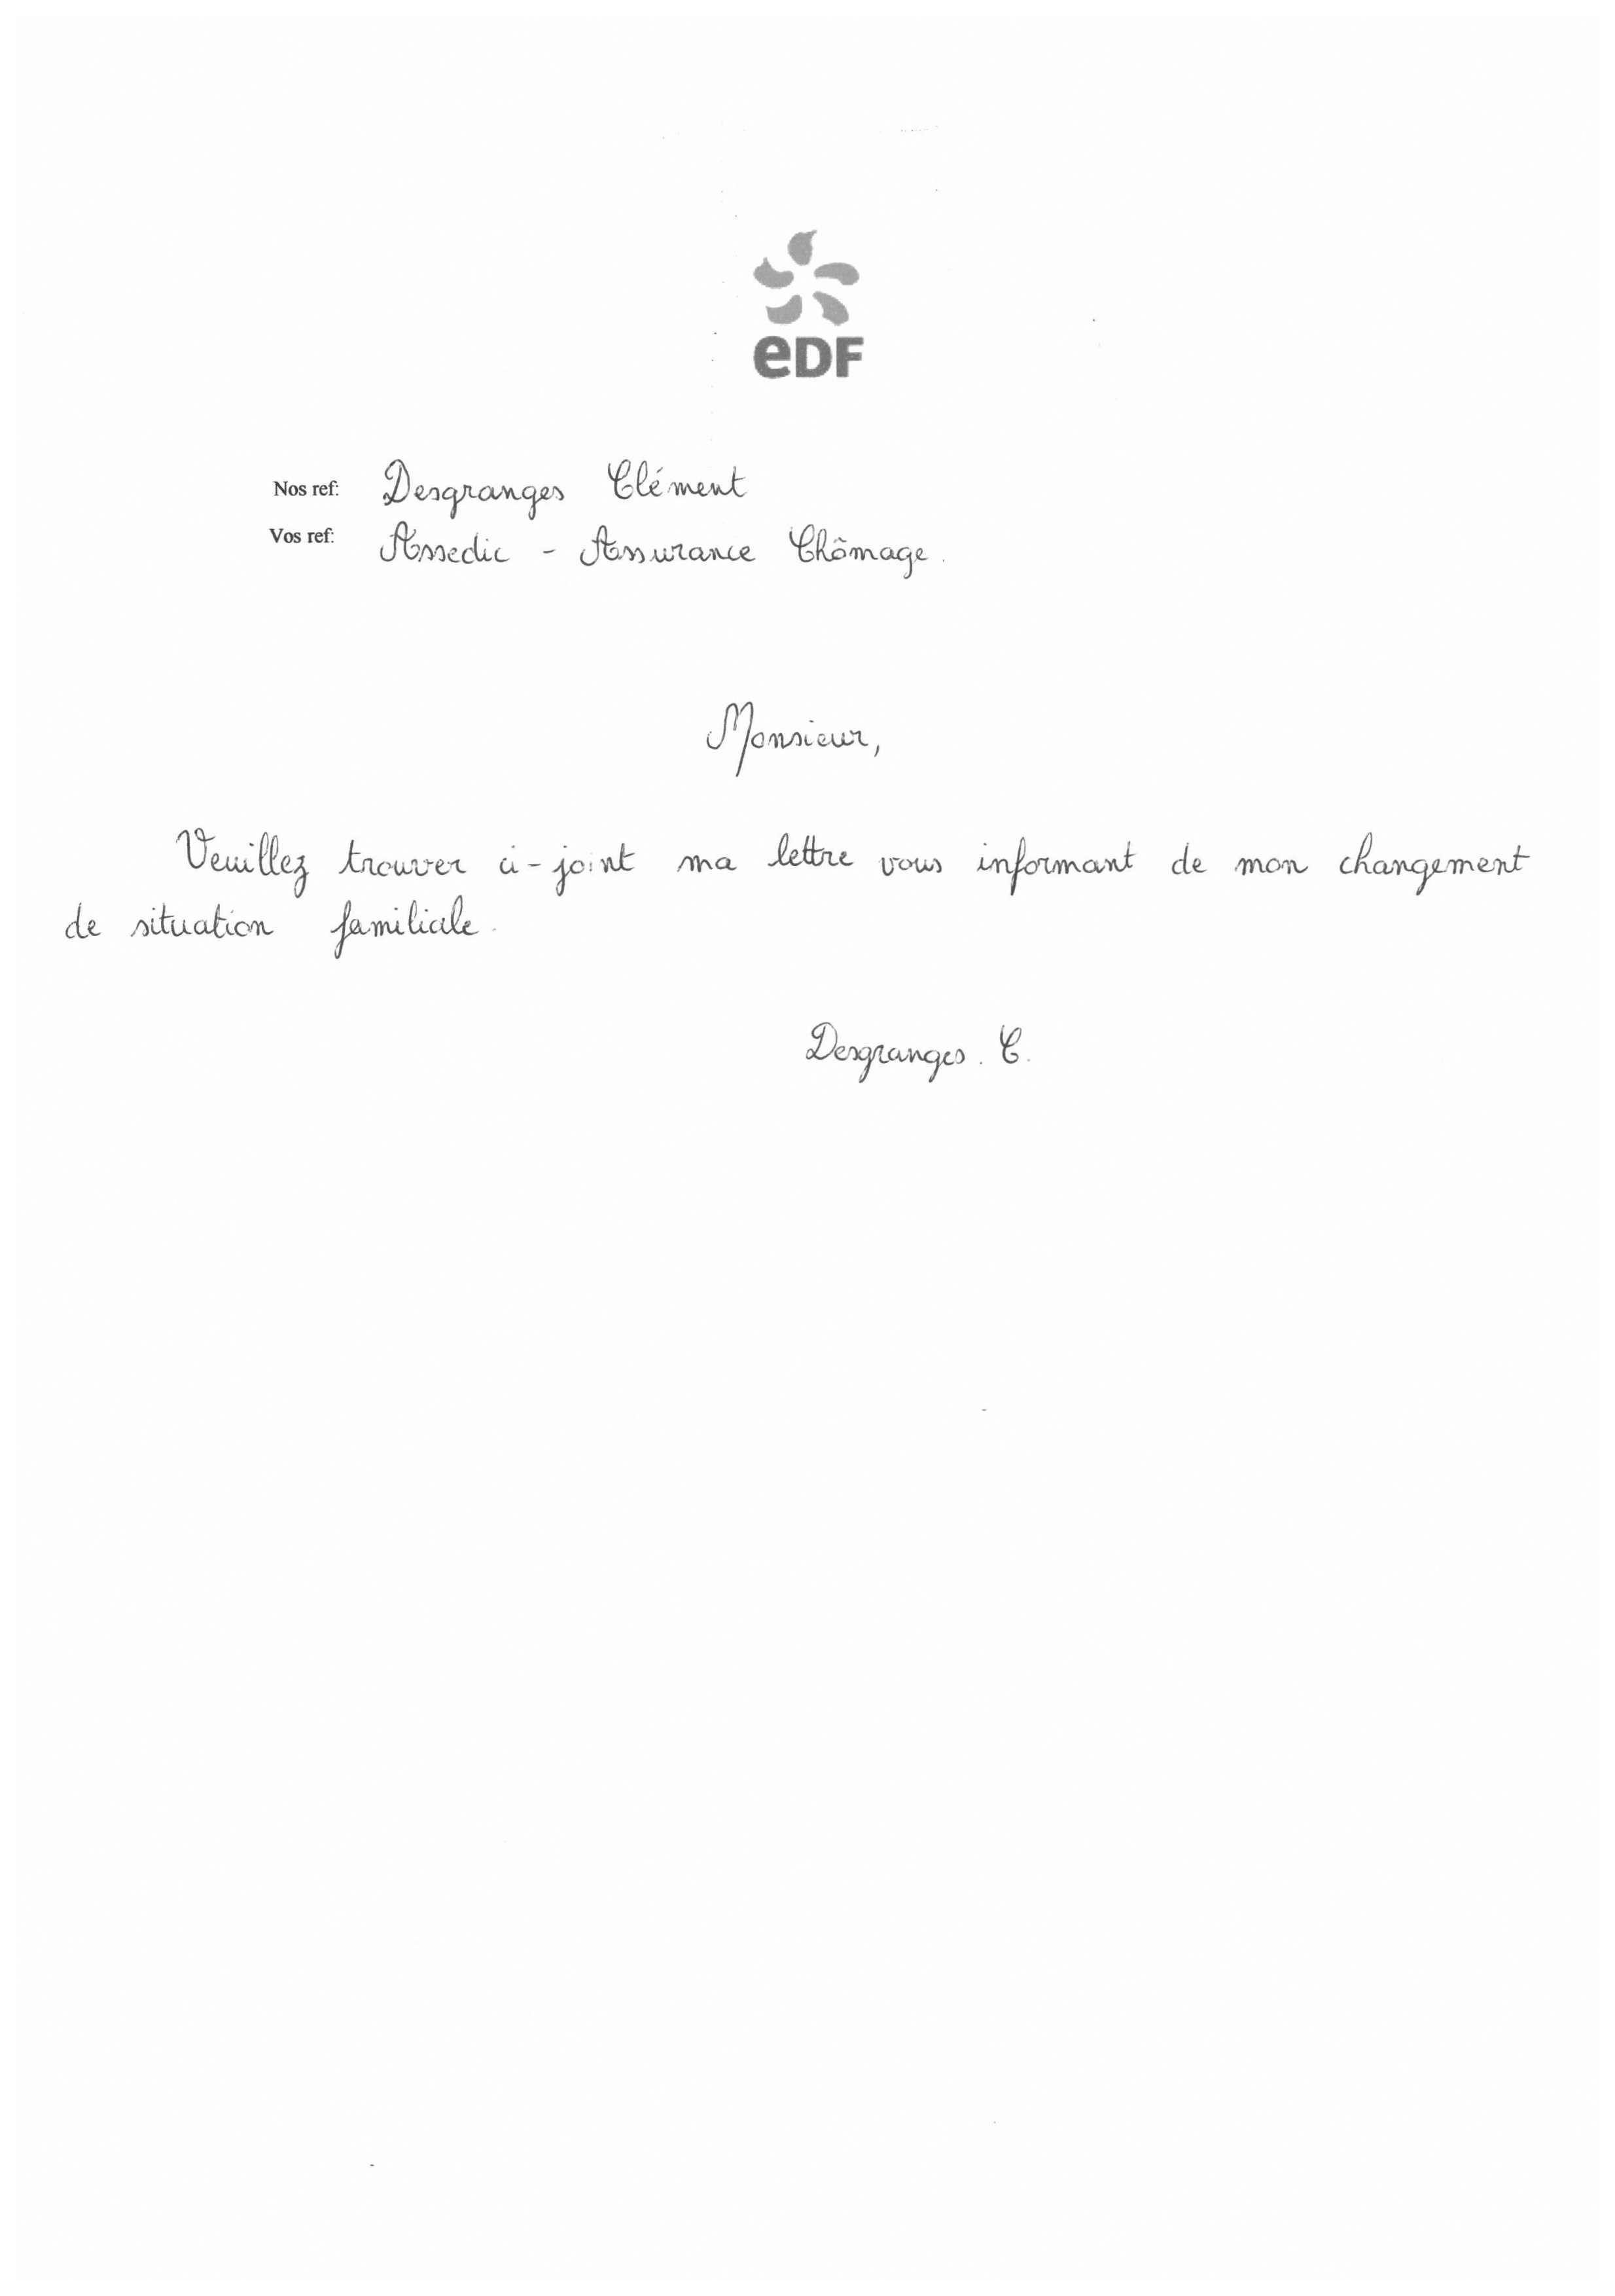 eDF
Nos ref: Desgranges Clément
Vos ref: Assedic - Assurance Chômage.
Monsieur,
Veuillez trouver ci-joint ma lettre vous informant de mon changement
de situation familiale.
Desgranges. C.